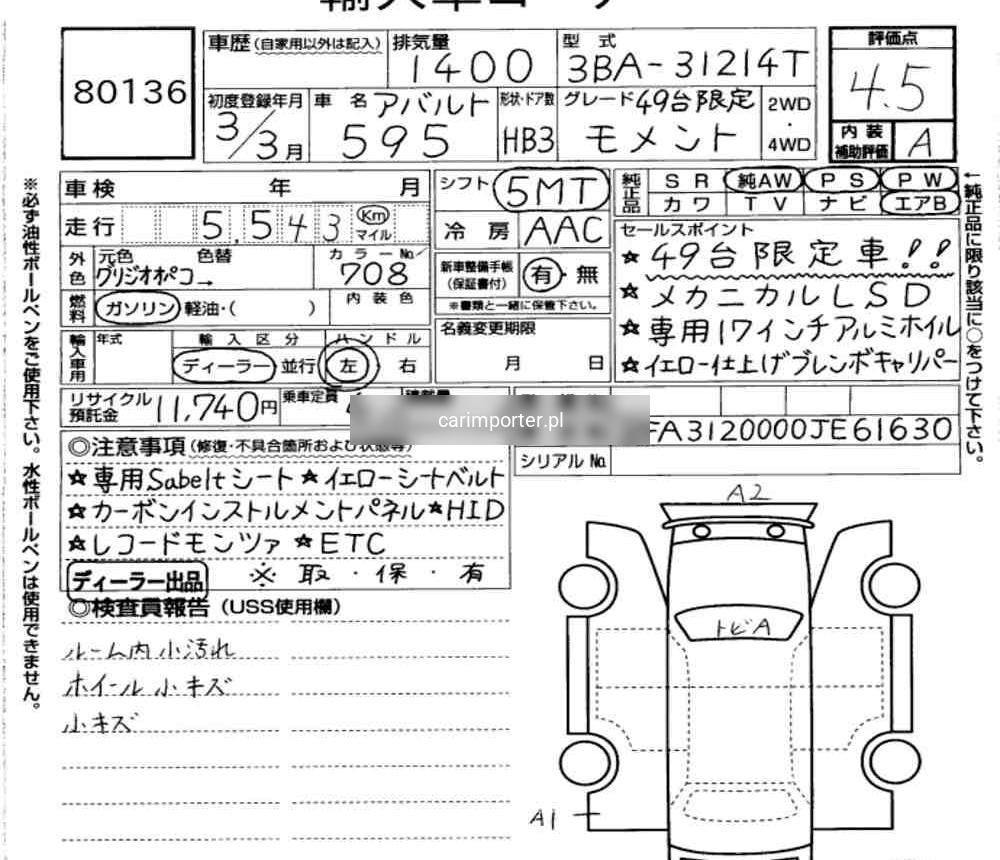 80136
車歴 (自家用以外は記入)
排気量
1400
型式
3BA-31214T
評価点
4.5
内装
補助評価
A
初度登録年月
3/3月
車名
アバルト
595
形状・ドア数
HB3
グレード 49台限定
モメント
2WD
・
4WD
※必ず油性ボールペンをご使用下さい。水性ボールペンは使用できません。
車検 年 月
走行 5,543 Km マイル
外色
元色 色替
グリジオオパコ→
カラーNo.
708
燃料
ガソリン 軽油・( )
内装色
輸入車用
年式
輸入区分
ディーラー 並行
ハンドル
左 右
リサイクル
預託金
11,740円
乗車定員
シフト 5MT
冷房 AAC
新車整備手帳
(保証書付)
有・無
※書類と一緒に保管下さい。
名義変更期限
月 日
純正品
SR 純AW PS PW
カワ TV ナビ エアB
↑純正品に限り該当に○をつけて下さい。
セールスポイント
☆49台限定車!!
☆メカニカルLSD
☆専用17インチアルミホイル
☆イエロー仕上げブレンボキャリパー
carimporter.pl
FA3120000JE61630
シリアルNo.
◎注意事項 (修復・不具合箇所および状態等)
☆専用Sabeltシート☆イエローシートベルト
☆カーボンインストルメントパネル☆HID
☆レコードモンツァ ☆ETC
ディーラー出品
※取・保・有
◎検査員報告 (USS使用欄)
ルーム内小汚れ
ホイール小キズ
小キズ
A2
トビA
A1